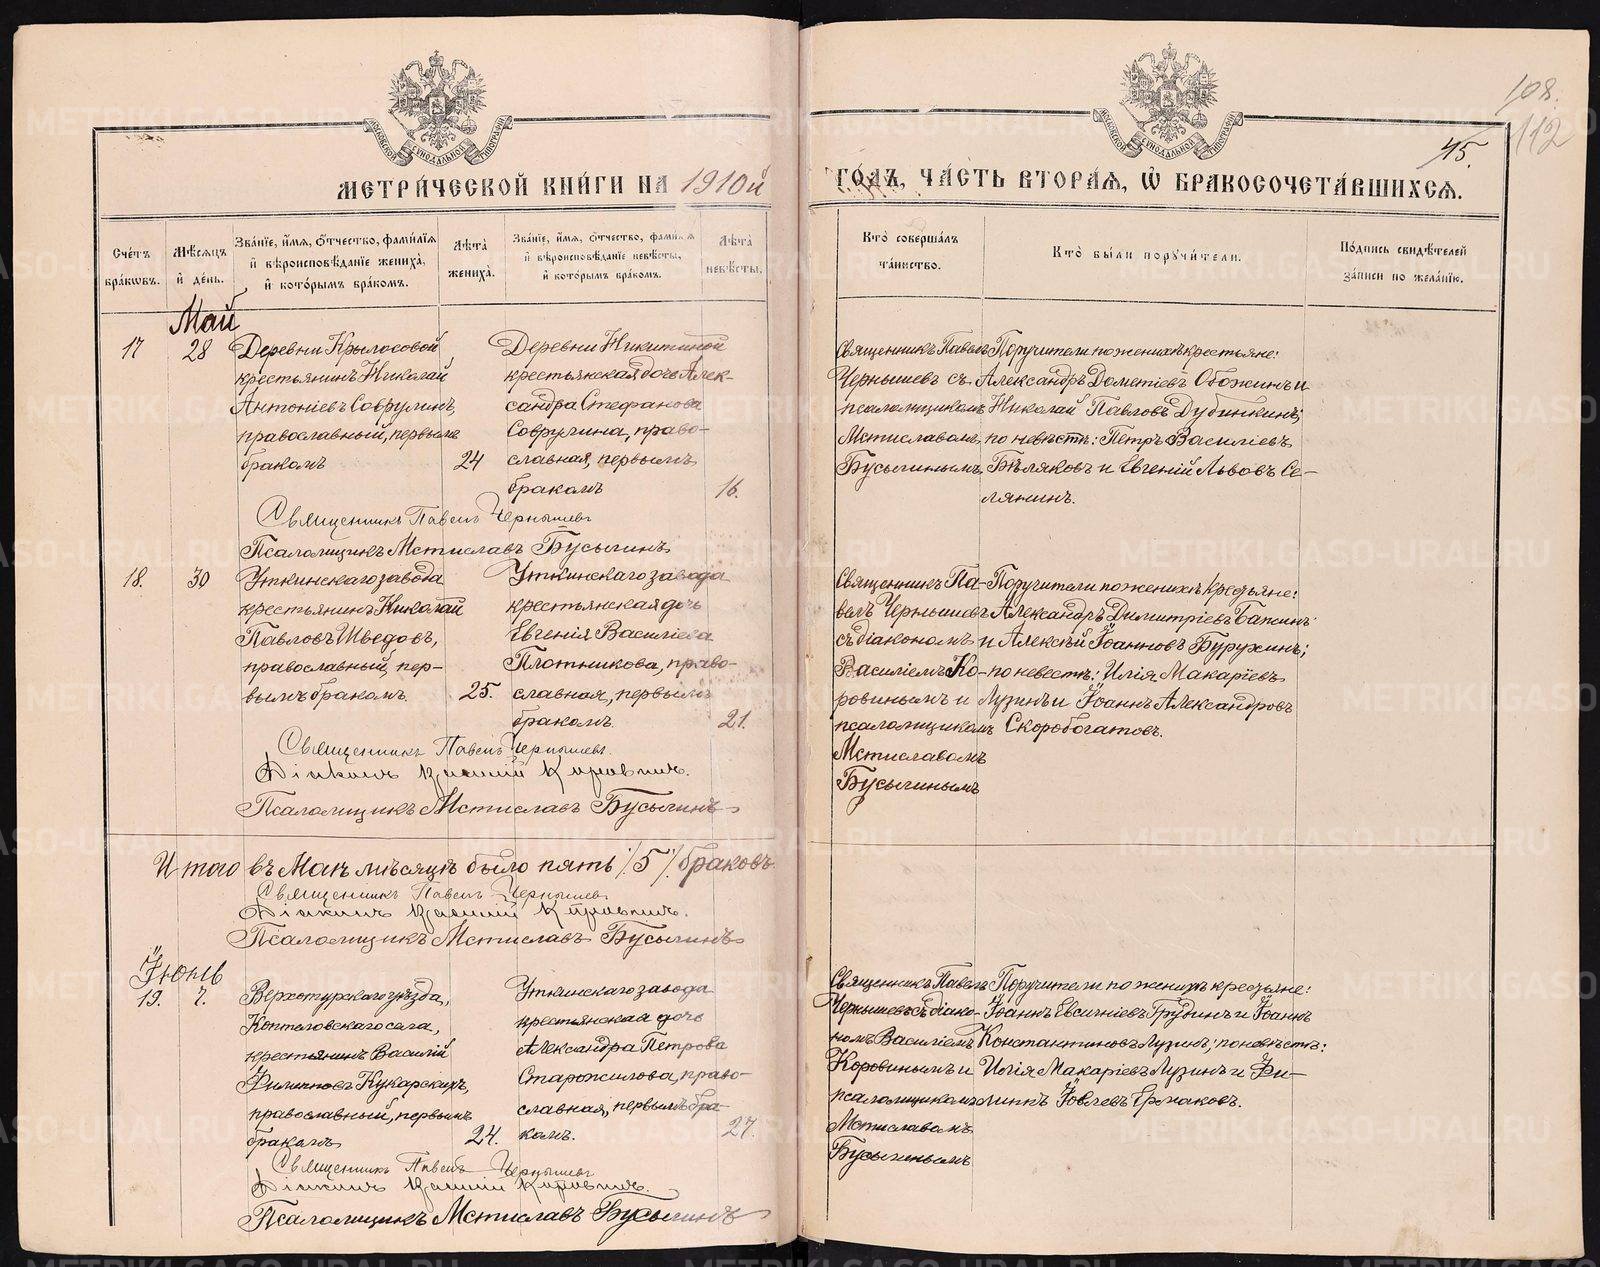 108.
112
45.
МЕТРИ́ЧЕСКОЙ КНИ́ГИ НА 1910й
ГО́ДЪ, ЧА́СТЬ ВТОРА́Я, Ѡ БРАКОСОЧЕТА́ВШИХСЯ.
Сче́тъ бра́кѡвъ.
Мѣ́сяцъ и҆ де́нь.
Зва́нїе, и҆́мя, ѻ҆́тчество, фамилїя и҆ вѣроисповѣ́данїе жениха̀, и҆ кото́рымъ бра́комъ.
Лѣ́та̀ жениха̀.
Зва́нїе, и҆́мя, ѻ҆́тчество, фамилїя и҆ вѣроисповѣ́данїе невѣ́сты, и҆ кото́рымъ бра́комъ.
Лѣ́та̀ невѣ́сты.
Кто̀ соверша́лъ та́инство.
Кто̀ бы́ли порꙋчи́тели.
По́дпись свидѣ́телей за́писи по жела́нїю.
Май
17
28
Деревни Крылосовой
крестьянинъ Николай
Антоніевъ Соврулинъ,
православный, первымъ
бракомъ
24
Деревни Никитиной
крестьянская дочь Алек-
сандра Стефанова
Соврулина, право-
славная, первымъ
бракомъ
16.
Священникъ Павелъ
Чернышевъ съ
псаломщикомъ
Мстиславомъ
Бусыгинымъ
Поручители по женихѣ крестьяне:
Александръ Дометіевъ Обожинъ и
Николай Павловъ Дубинкинъ;
по невѣстѣ: Петръ Василіевъ
Бѣляковъ и Евгеній Львовъ Се-
лянинъ.
Священникъ Павелъ Чернышевъ
Псаломщикъ Мстиславъ Бусыгинъ
18.
30
Уткинскаго завода
крестьянинъ Николай
Павловъ Шведовъ,
православный, пер-
вымъ бракомъ.
25.
Уткинскаго завода
крестьянская дочь
Евгенія Василіева
Плотникова, право-
славная, первымъ
бракомъ.
21.
Священникъ Па-
велъ Чернышевъ
съ діакономъ
Василіемъ Ко-
ровинымъ и
псаломщикомъ
Мстиславомъ
Бусыгинымъ
Поручители по женихѣ крестьяне:
Александръ Димитріевъ Бапинъ
и Алексѣй Іоанновъ Бурухинъ;
по невестѣ: Илія Макаріевъ
Лузинъ и Іоаннъ Александровъ
Скоробогатовъ.
Священникъ Павелъ Чернышевъ.
Діаконъ Василій Коровинъ.
Псаломщикъ Мстиславъ Бусыгинъ
Итого въ Маѣ мѣсяцѣ было пять /5/ браковъ
Священникъ Павелъ Чернышевъ
Діаконъ Василій Коровинъ.
Псаломщикъ Мстиславъ Бусыгинъ
Іюнь
19.
7.
Верхотурскаго уѣзда,
Коптеловскаго села,
крестьянинъ Василій
Филипповъ Кукарскихъ,
православный, первымъ
бракомъ
24.
Уткинскаго завода
крестьянская дочь
Александра Петрова
Старожилова, право-
славная, первымъ бра-
комъ.
27.
Священникъ Павелъ
Чернышевъ съ діако-
номъ Василіемъ
Коровинымъ и
псаломщикомъ
Мстиславомъ
Бусыгинымъ
Поручители по женихѣ крестьяне:
Іоаннъ Евсигніевъ Грудинъ и Іоаннъ
Константиновъ Лузинъ; по невѣстѣ:
Илія Макаріевъ Лузинъ и Фи-
липпъ Іовлевъ Ермаковъ.
Священникъ Павелъ Чернышевъ
Діаконъ Василій Коровинъ.
Псаломщикъ Мстиславъ Бусыгинъ
METRIKI.GASO-URAL.RU